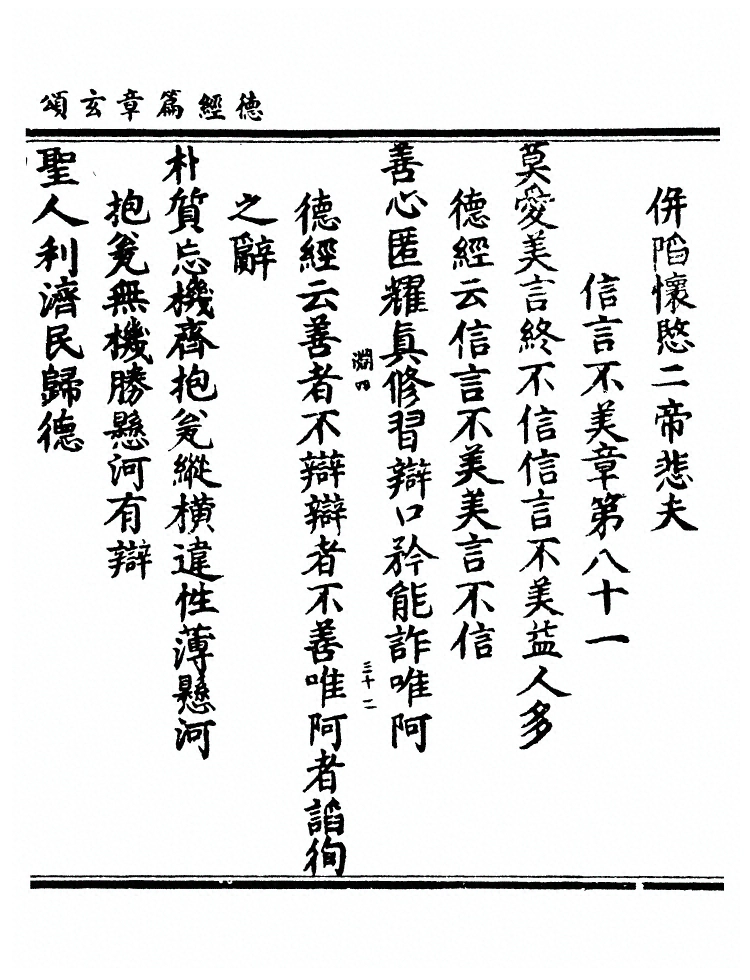 頌玄章篇經德
併陷懷愍二帝悲夫
信言不美章第八十一
莫愛美言終不信信言不美益人多
德經云信言不美美言不信
善心匿耀眞修習辯口矜能詐唯阿
淵四
三十二
德經云善者不辯辯者不善唯阿者諂徇
之辭
朴質忘機齊抱瓮縱橫違性薄懸河
抱瓮無機勝懸河有辯
聖人利濟民歸德